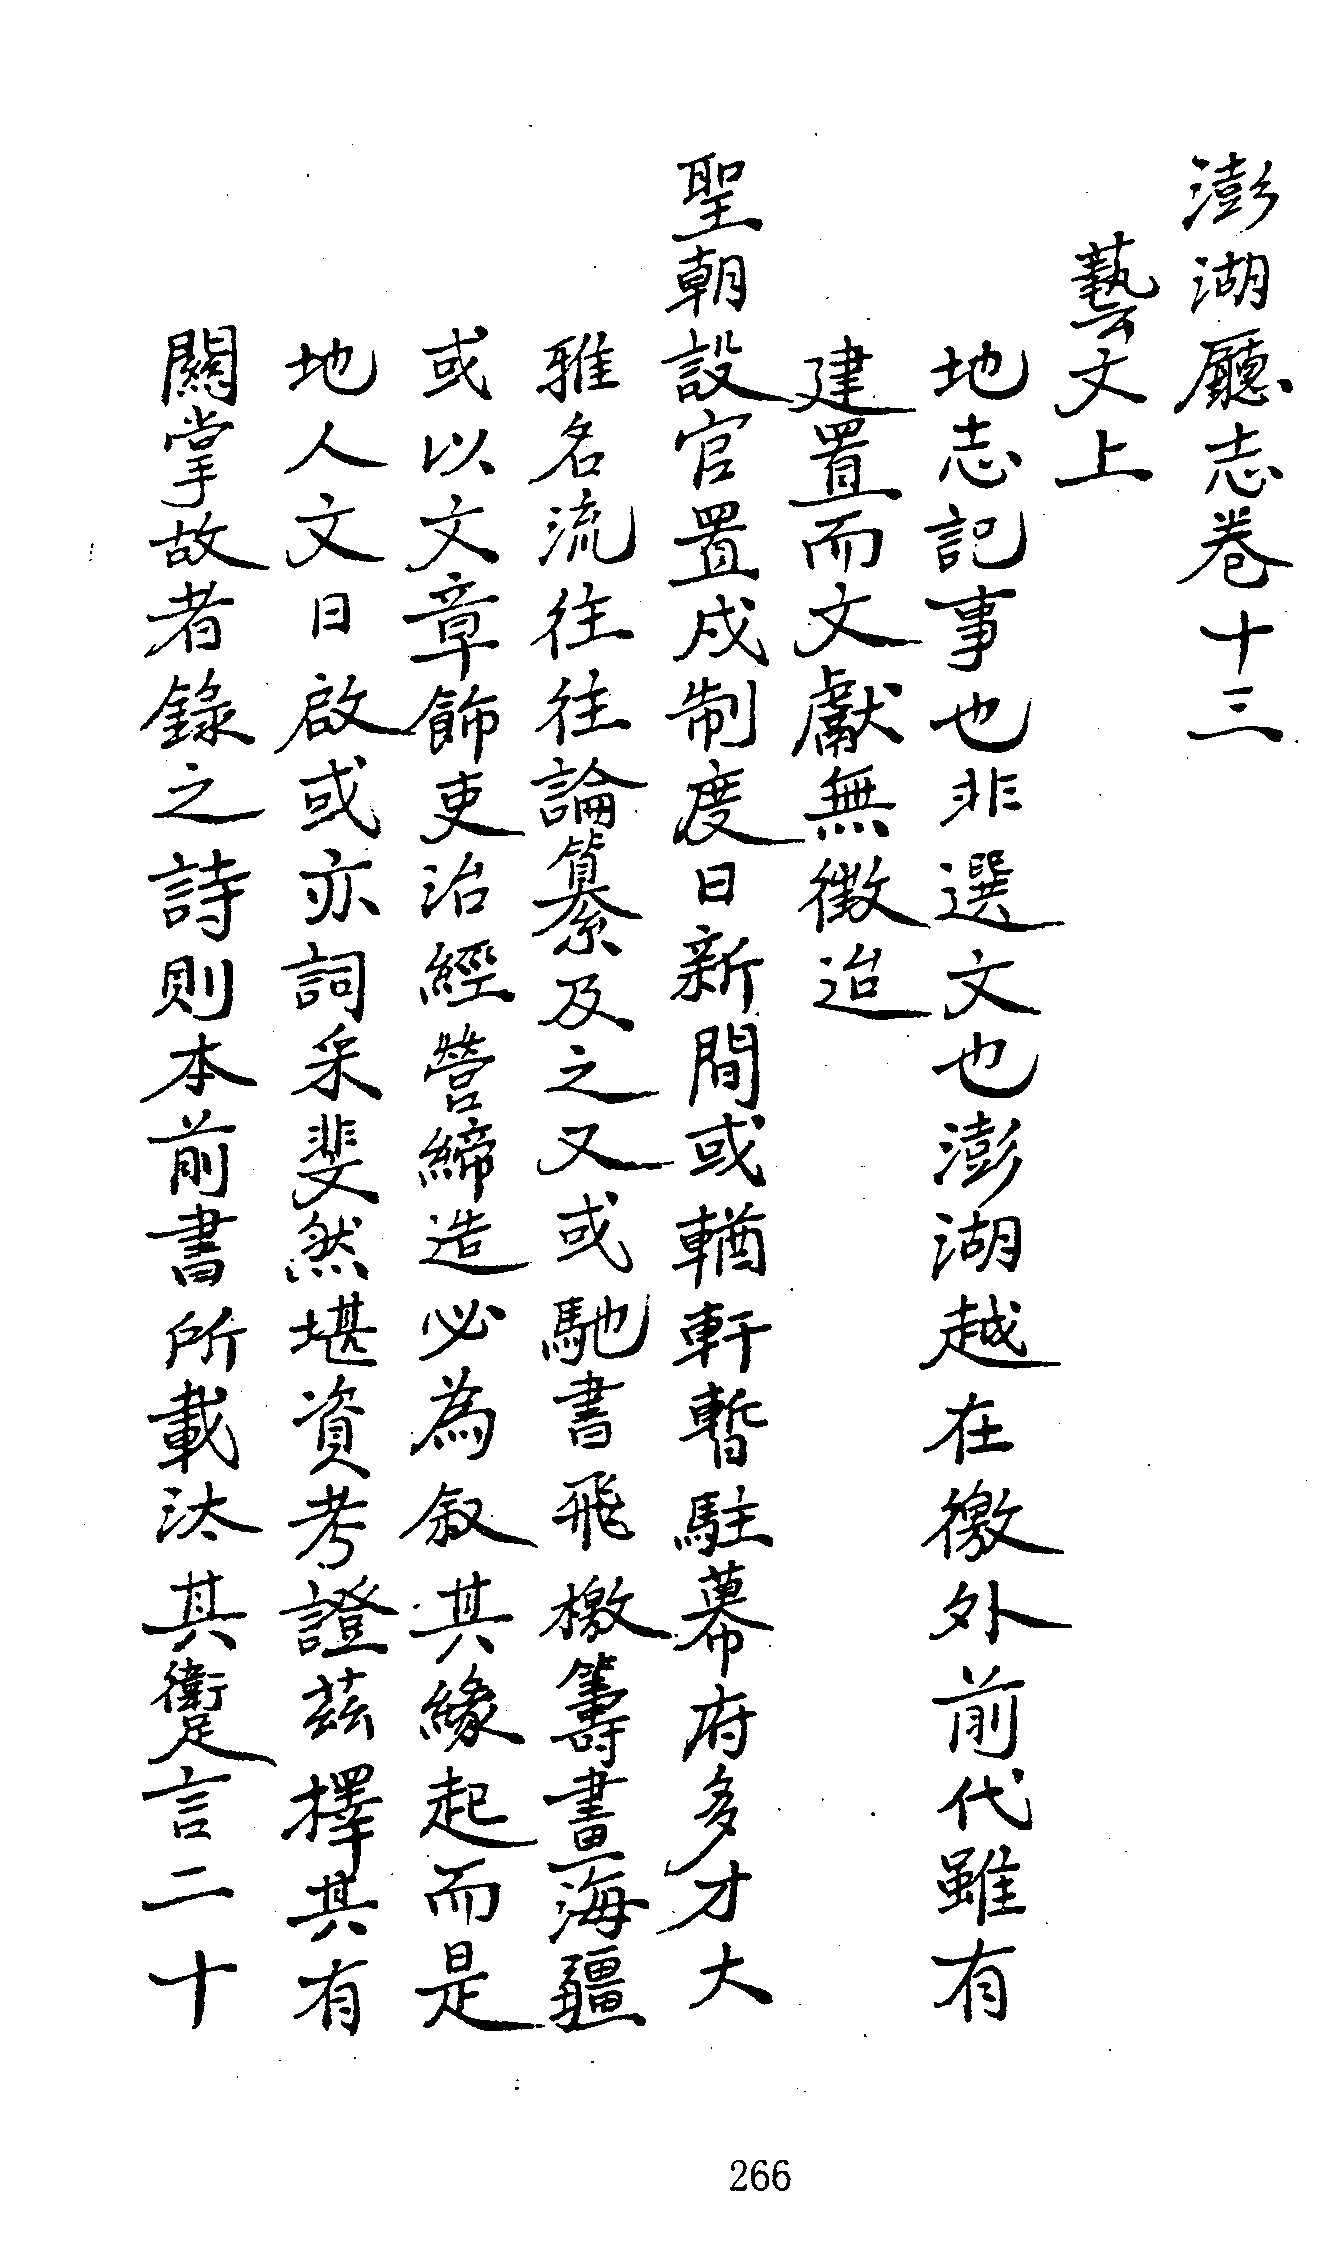 澎湖廳志卷十三
藝文上
地志記事也非選文也澎湖越在徼外前代雖有
建置而文獻無徵迨
聖朝設官置戍制度日新間或輶軒暫駐幕府多才大
雅名流往往論纂及之又或馳書飛檄籌畫海疆
或以文章飾吏治經營締造必為叙其緣起而是
地人文日啟或亦詞采斐然堪資考證茲擇其有
關掌故者錄之詩則本前書所載汰其躗言二十
266